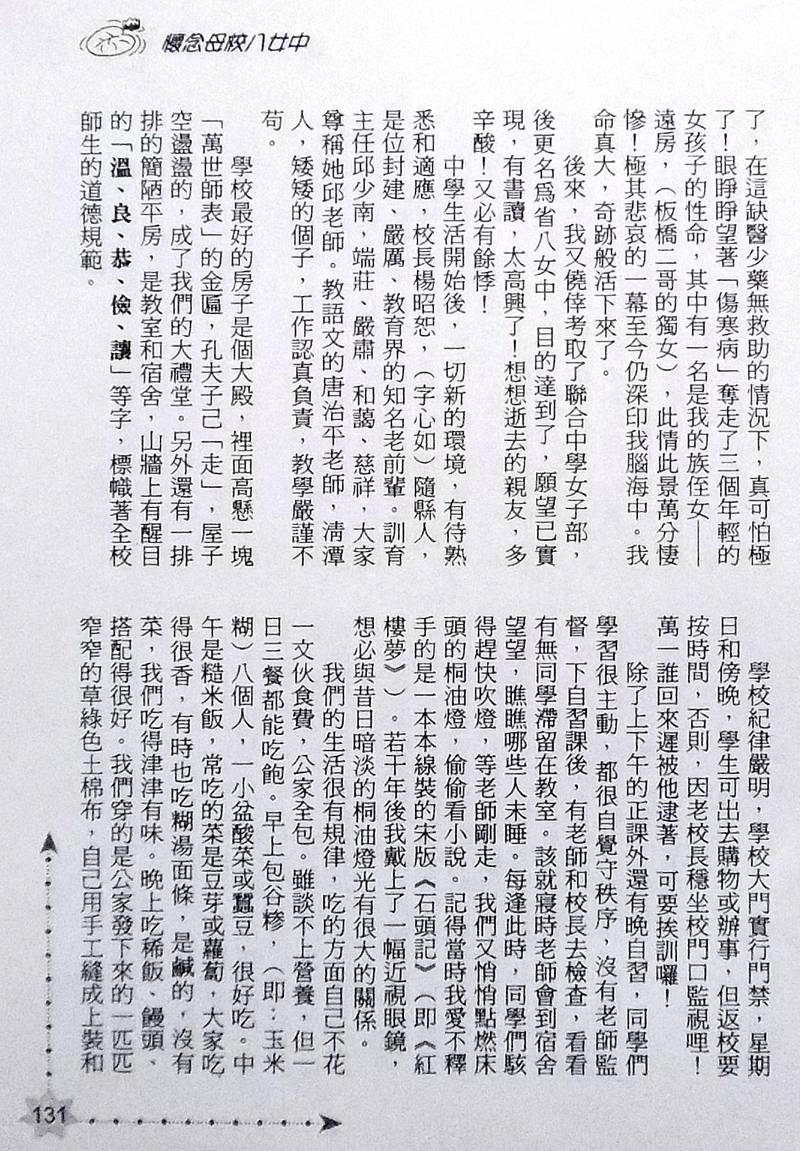 懷念母校八女中
了，在這缺醫少藥無救助的情況下，真可怕極
了！眼睜睜望著「傷寒病」奪走了三個年輕的
女孩子的性命，其中有一名是我的族侄女——
遠房，（板橋二哥的獨女），此情此景萬分悽
慘！極其悲哀的一幕至今仍深印我腦海中。我
命真大，奇跡般活下來了。
後來，我又僥倖考取了聯合中學女子部，
後更名爲省八女中，目的達到了，願望已實
現，有書讀，太高興了！想想逝去的親友，多
辛酸！又必有餘悸！
中學生活開始後，一切新的環境，有待熟
悉和適應，校長楊昭恕，（字心如）隨縣人，
是位封建、嚴厲、教育界的知名老前輩。訓育
主任邱少南，端莊、嚴肅、和藹、慈祥，大家
尊稱她邱老師。教語文的唐治平老師，清潭
人，矮矮的個子，工作認真負責，教學嚴謹不
苟。
學校最好的房子是個大殿，裡面高懸一塊
「萬世師表」的金匾，孔夫子己「走」，屋子
空盪盪的，成了我們的大禮堂。另外還有一排
排的簡陋平房，是教室和宿舍，山牆上有醒目
的「溫、良、恭、儉、讓」等字，標幟著全校
師生的道德規範。
學校紀律嚴明，學校大門實行門禁，星期
日和傍晚，學生可出去購物或辦事，但返校要
按時間，否則，因老校長穩坐校門口監視哩！
萬一誰回來遲被他逮著，可要挨訓囉！
除了上下午的正課外還有晚自習，同學們
學習很主動，都很自覺守秩序，沒有老師監
督，下自習課後，有老師和校長去檢查，看看
有無同學滯留在教室。該就寢時老師會到宿舍
望望，瞧瞧哪些人未睡。每逢此時，同學們駭
得趕快吹燈，等老師剛走，我們又悄悄點燃床
頭的桐油燈，偷偷看小說。記得當時我愛不釋
手的是一本本線裝的宋版《石頭記》（即《紅
樓夢》）。若干年後我戴上了一幅近視眼鏡，
想必與昔日暗淡的桐油燈光有很大的關係。
我們的生活很有規律，吃的方面自己不花
一文伙食費，公家全包。雖談不上營養，但一
日三餐都能吃飽。早上包谷糝，（即：玉米
糊）八個人，一小盆酸菜或蠶豆，很好吃。中
午是糙米飯，常吃的菜是豆芽或蘿蔔，大家吃
得很香，有時也吃糊湯面條，是鹹的，沒有
菜，我們吃得津津有味。晚上吃稀飯、饅頭、
搭配得很好。我們穿的是公家發下來的一匹匹
窄窄的草綠色土棉布，自己用手工縫成上裝和
131